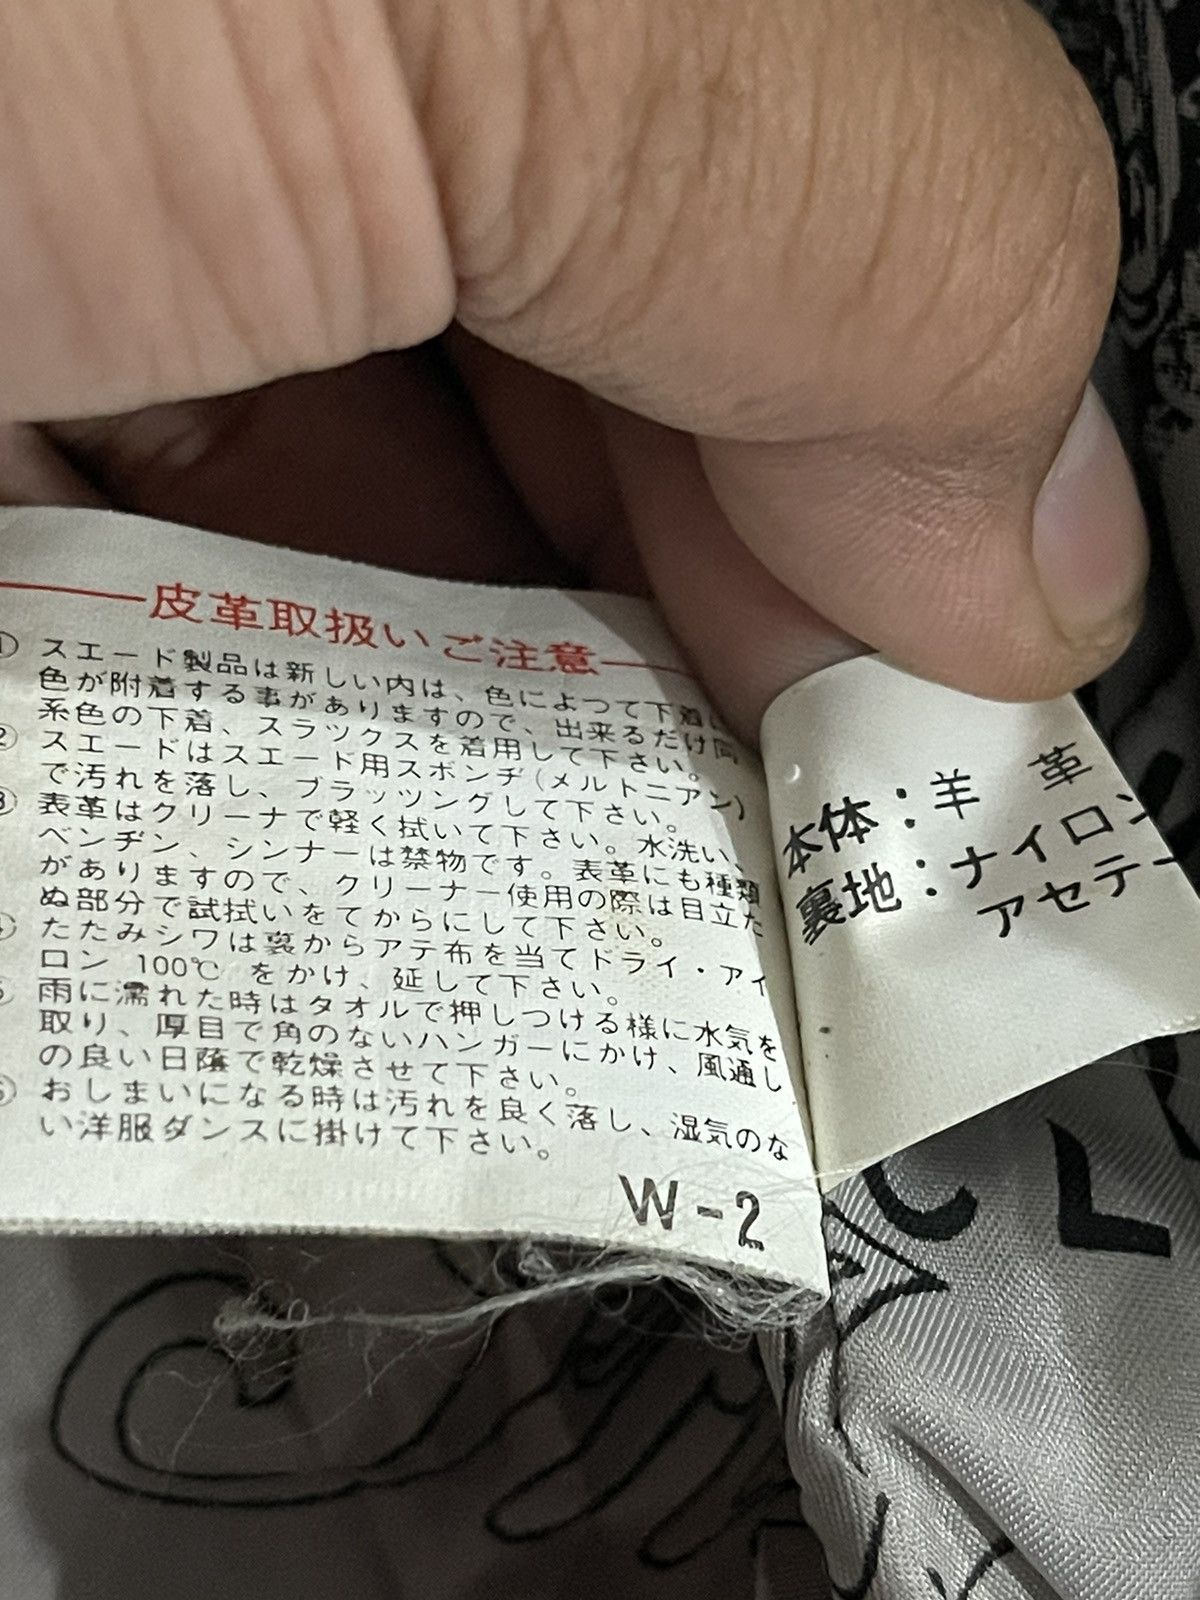 皮革取扱いご注意
① スエード製品は新しい内は、色によつて下着に
色が附着する事がありますので、出来るだけ同
系色の下着、スラックスを着用して下さい。
② スエードはスエード用スポンヂ(メルトニアン)
で汚れを落し、ブラッツングして下さい。
③ 表革はクリーナで軽く拭いて下さい。水洗い、
ベンヂン、シンナーは禁物です。表革にも種類
がありますので、クリーナー使用の際は目立た
ぬ部分で試拭いをてからにして下さい。
④ たたみシワは裏からアテ布を当てドライ・アイ
ロン 100℃ をかけ、延して下さい。
⑤ 雨に濡れた時はタオルで押しつける様に水気を
取り、厚目で角のないハンガーにかけ、風通し
の良い日蔭で乾燥させて下さい。
⑥ おしまいになる時は汚れを良く落し、湿気のな
い洋服ダンスに掛けて下さい。
W-2
本体:羊 革
裏地:ナイロン
アセテー